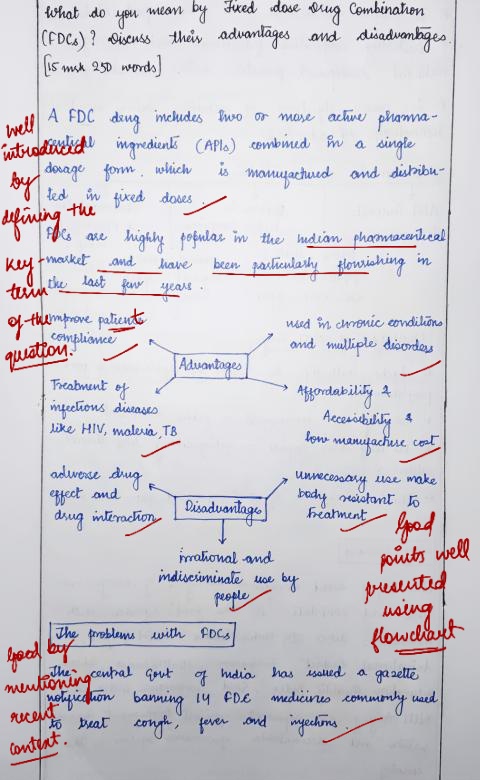 What do you mean by Fixed dose Drug Combination
(FDCs)? Discuss their advantages and disadvantages.
[15 mrk 250 words]
A FDC drug includes two or more active pharma-
ceutical ingredients (APIs) combined in a single
dosage form. which is manufactured and distribu-
ted in fixed doses.
well
introduced
by
defining the
key-
term
of the
question.
FDCs are highly popular in the Indian pharmaceutical
market and have been particularly flourishing in
the last few years.
improve patients
compliance
used in chronic conditions
and multiple disorders
Advantages
Treatment of
infectious diseases
like HIV, maleria, TB
Affordability &
Accessibility &
low manufacture cost
adverse drug
effect and
drug interaction
unnecessary use make
body resistant to
treatment
Disadvantages
irrational and
indiscriminate use by
people
Good
points well
presented
using
flowchart
The problems with FDCs
Good by
mentioning
recent
context.
The central Govt of India has issued a gazette
notification banning 14 FDC medicines commonly used
to treat cough, fever and injections.